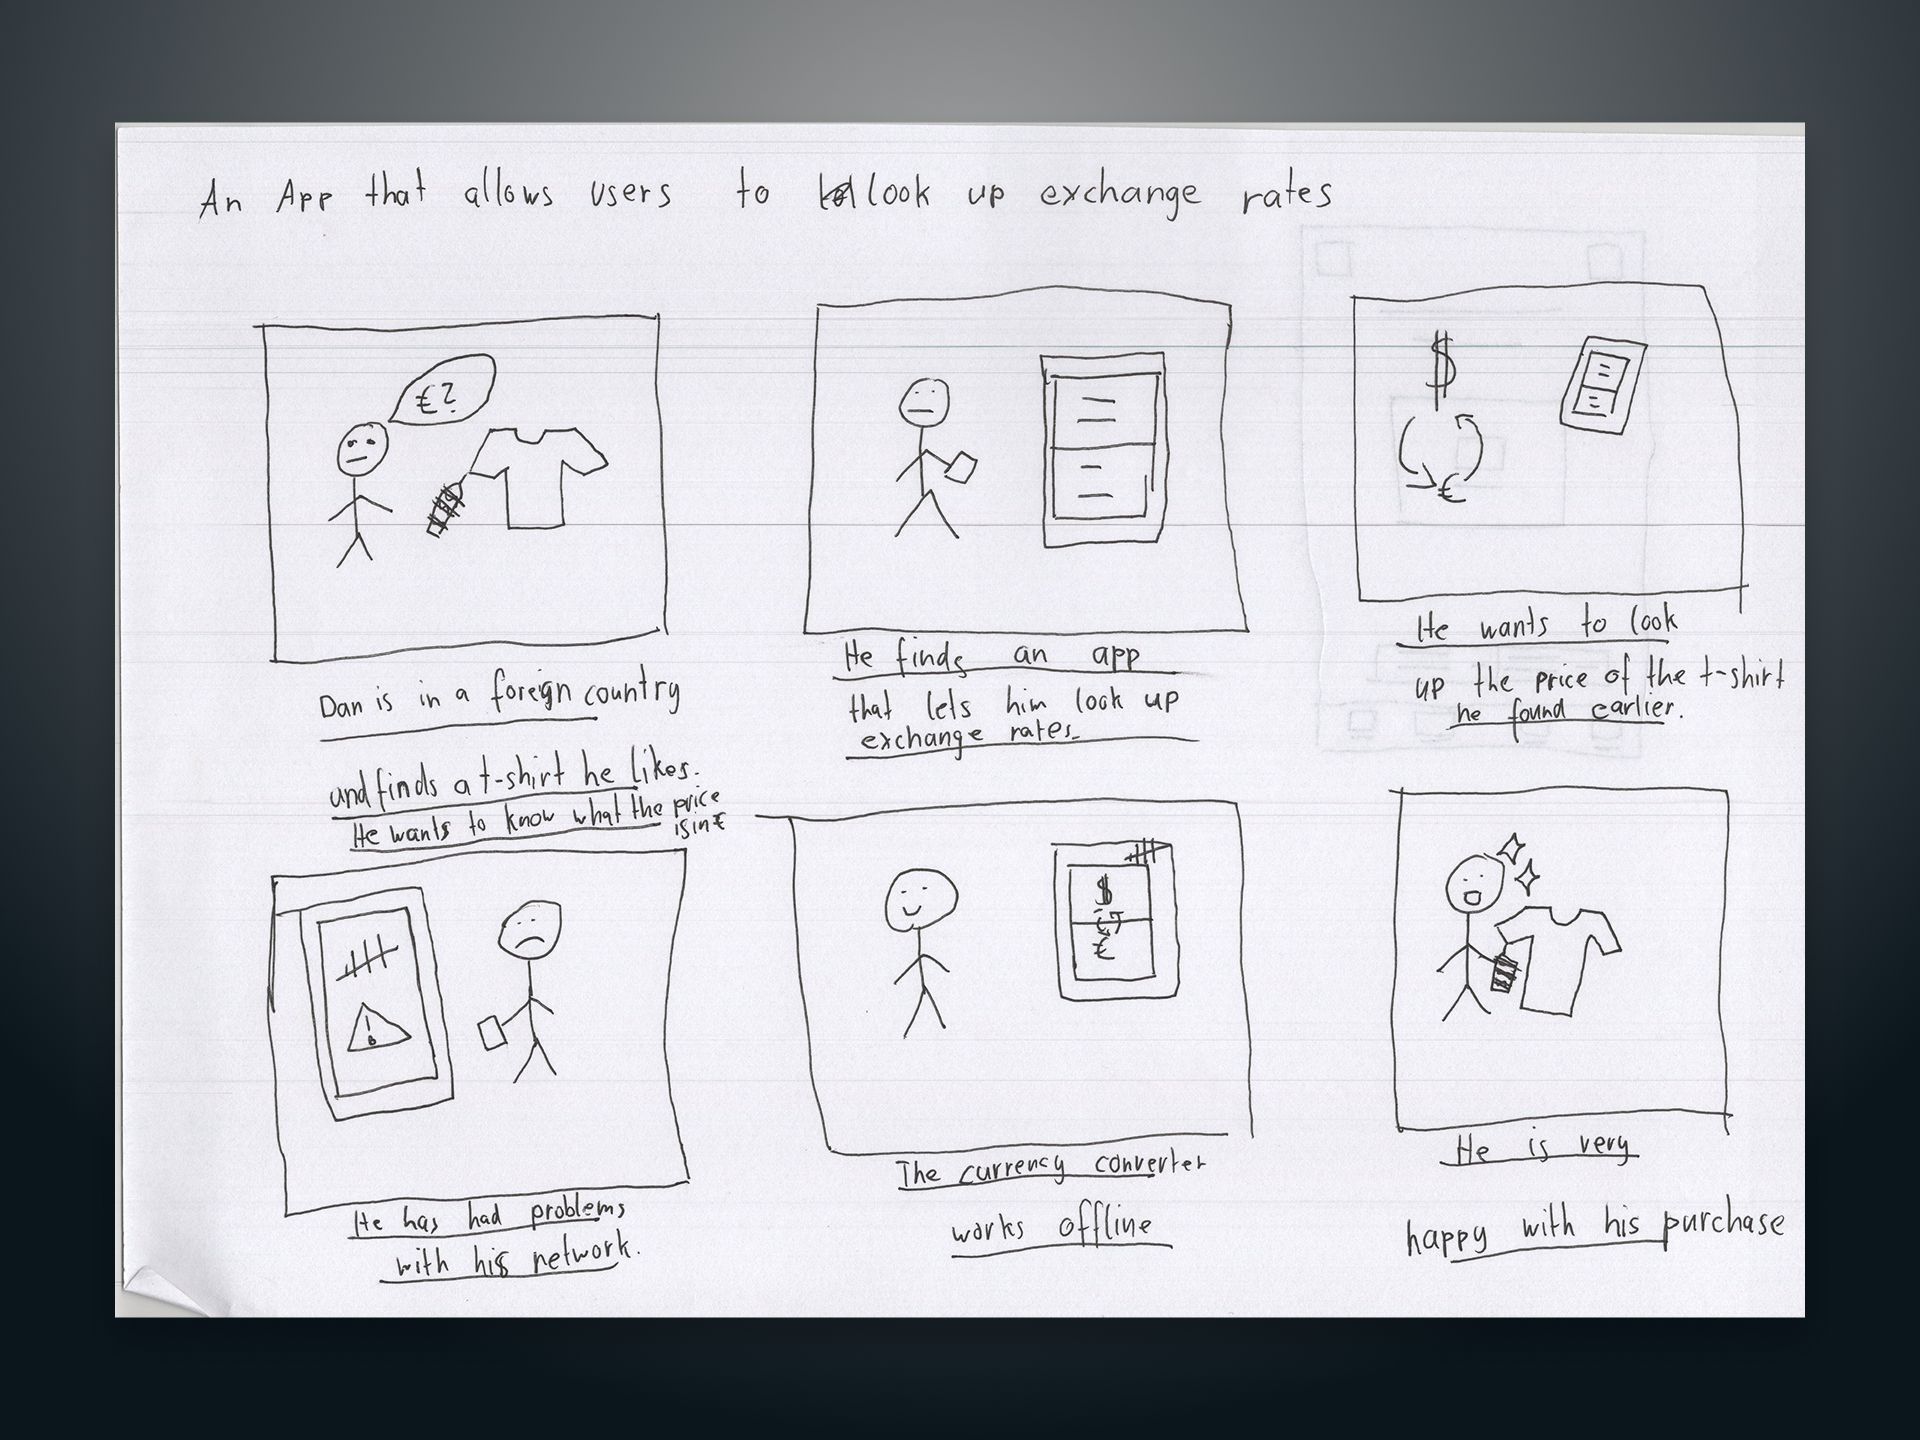 An App that allows users to look up exchange rates
€?
$
€
Dan is in a foreign country
and finds a t-shirt he likes.
He wants to know what the price
is in €
He finds an app
that lets him look up
exchange rates.
He wants to look
up the price of the t-shirt
he found earlier.
!
$
€
He has had problems
with his network.
The currency converter
works offline
He is very
happy with his purchase